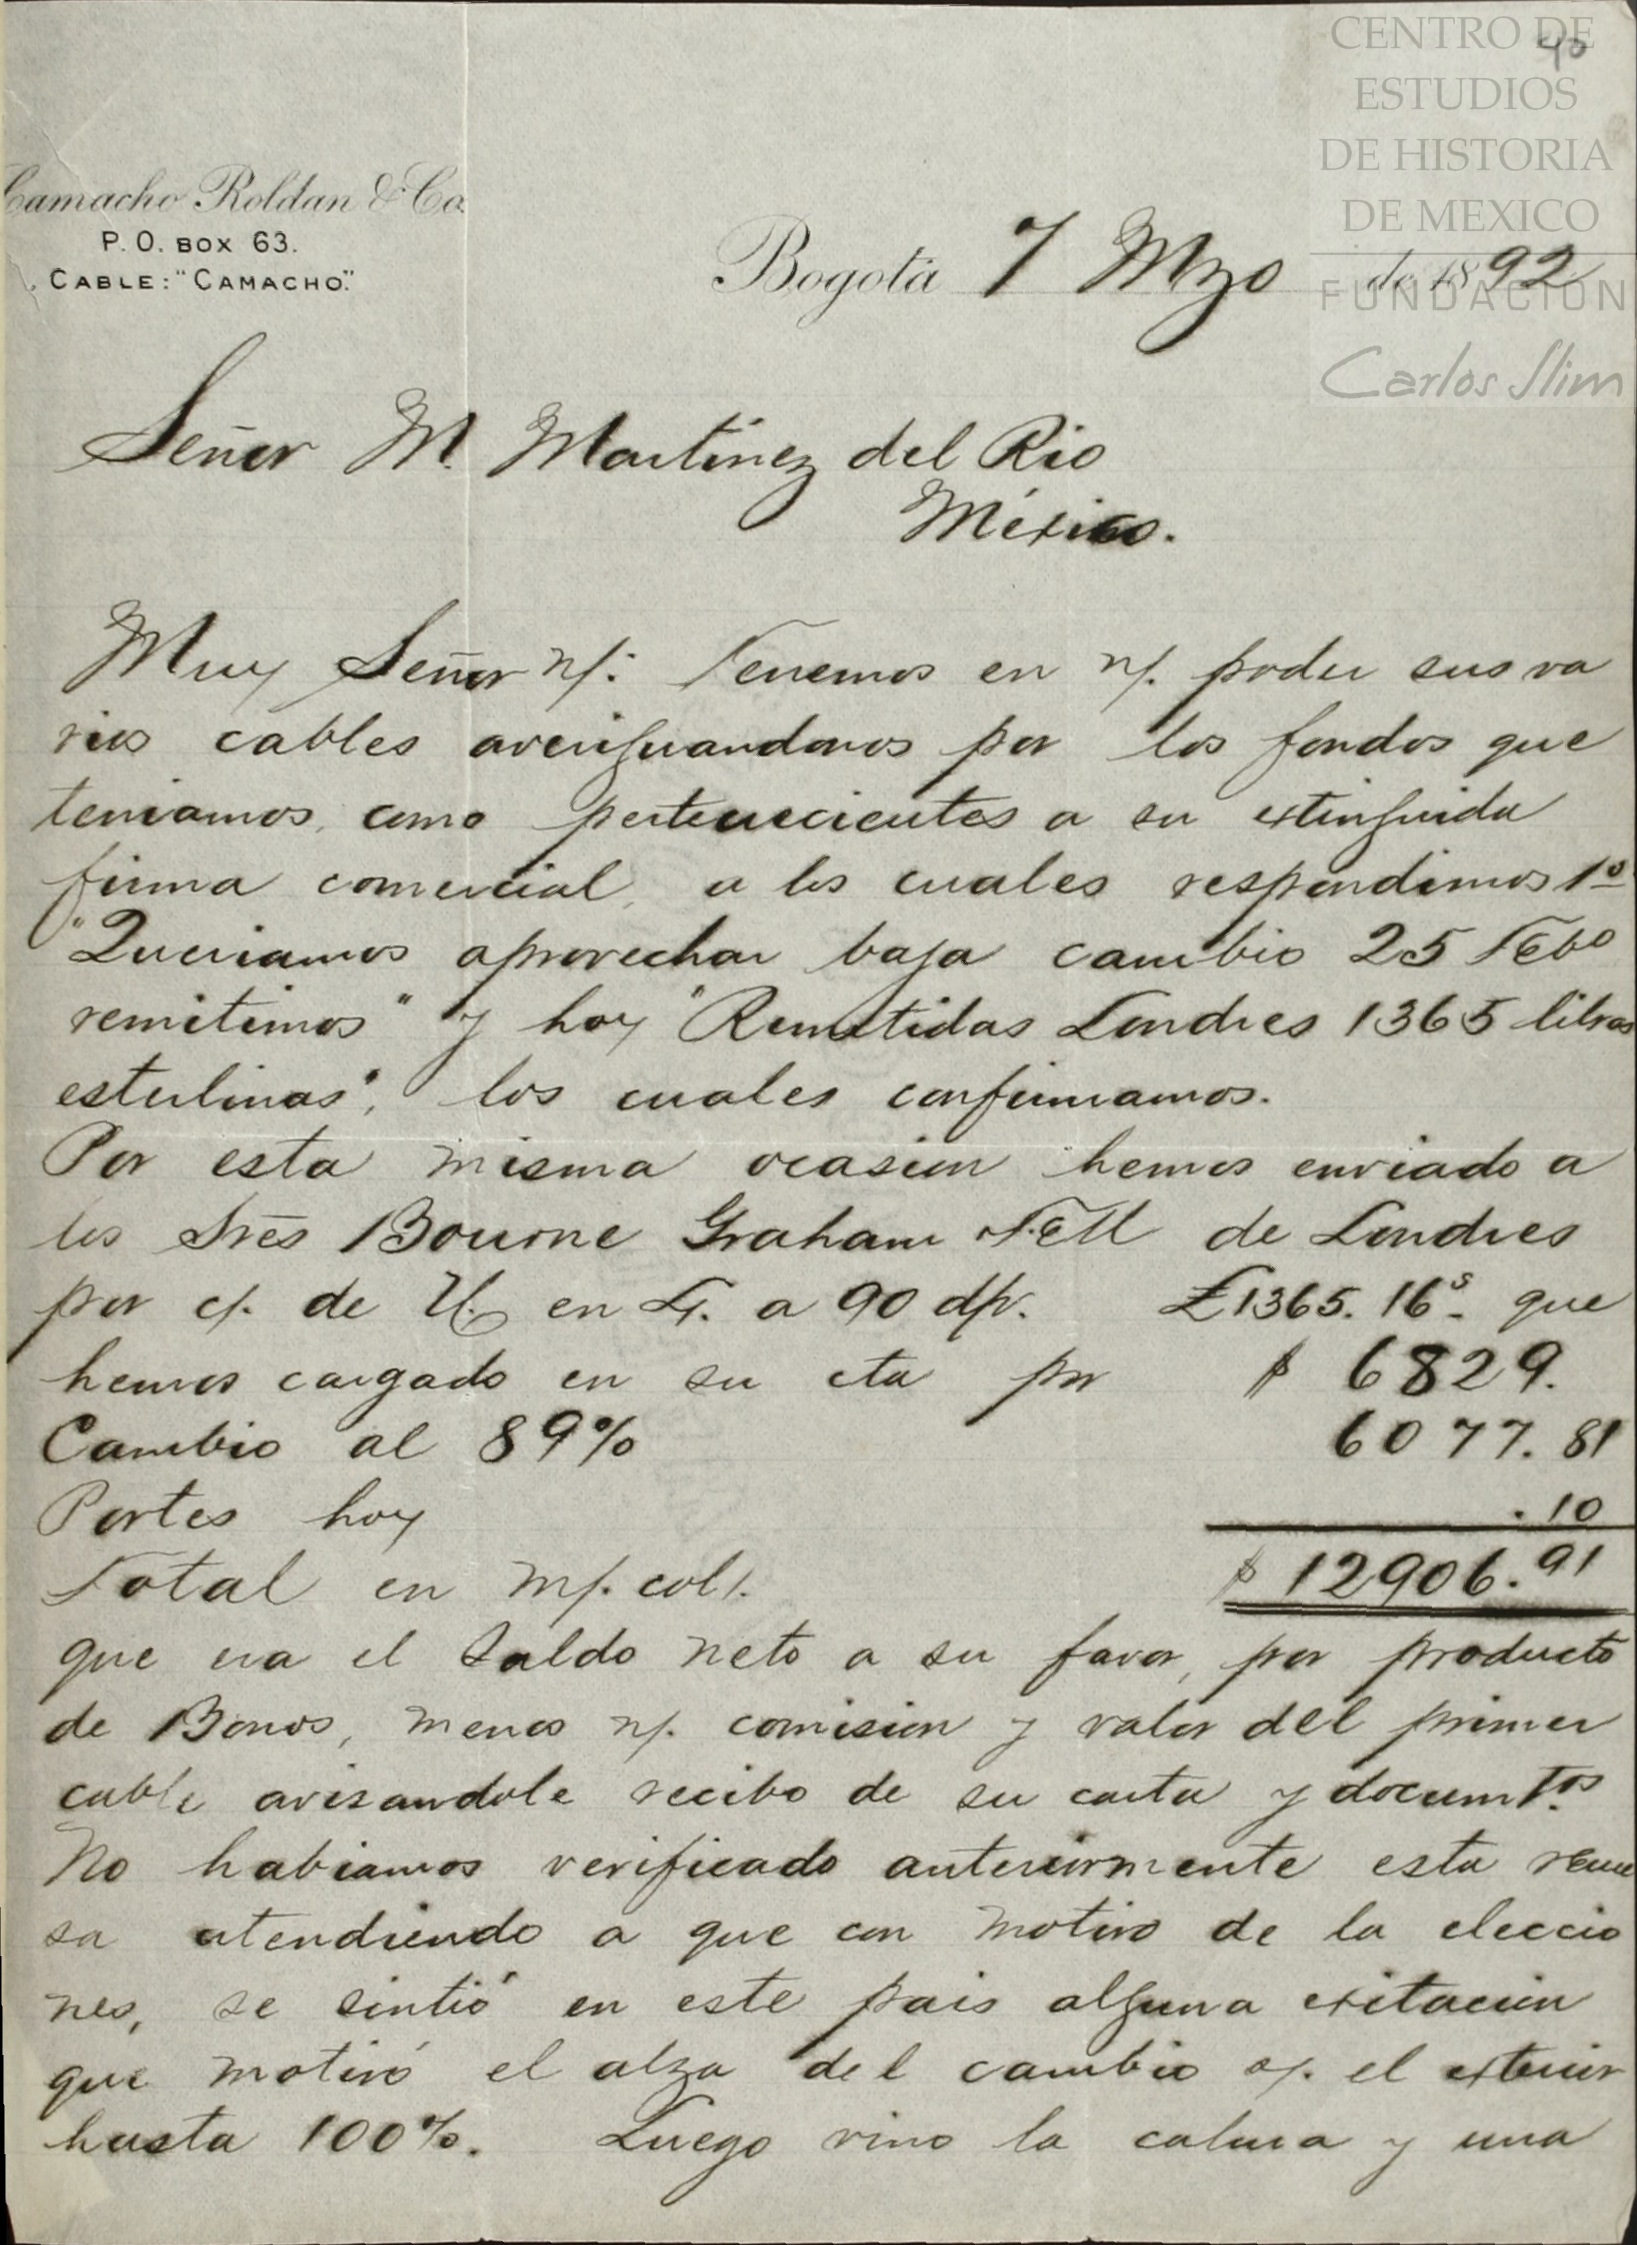 CENTRO DE
ESTUDIOS
DE HISTORIA
DE MEXICO
FUNDACION
Carlos Slim
40
Camacho Roldan & Co.
P. O. BOX 63.
CABLE: "CAMACHO."
Bogotá 7 Mzo de 1892
Señor M. Martinez del Rio
México.
Muy Señor n/: Tenemos en n/. poder sus va
rios cables averiguandonos por los fondos que
teniamos, como pertenecientes a su extinguida
firma comercial, a los cuales respondimos 1º
"Queriamos aprovechar baja cambio 25 Febº
remitimos" y hoy "Remitidas Londres 1365 libras
esterlinas", los cuales confirmamos.
Por esta misma ocasion hemos enviado a
los Sres Bourne Graham de Londres
por c/. de U. en L/. a 90 d/v. £1365. 16s- que
hemos cargado en su cta por $ 6829.
Cambio al 89% 6077. 81
Portes hoy . 10
Total en m/. col/. $ 12906. 91
que era el saldo neto a su favor, por producto
de Bonos, menos n/. comision y valor del primer
cable avisandole recibo de su carta y documtos
No habiamos verificado anteriormente esta reme
sa atendiendo a que con motivo de la eleccio
nes, se sintió en este pais alguna exitacion
que motivó el alza del cambio s/. el exterior
hasta 100%. Luego vino la calma y una